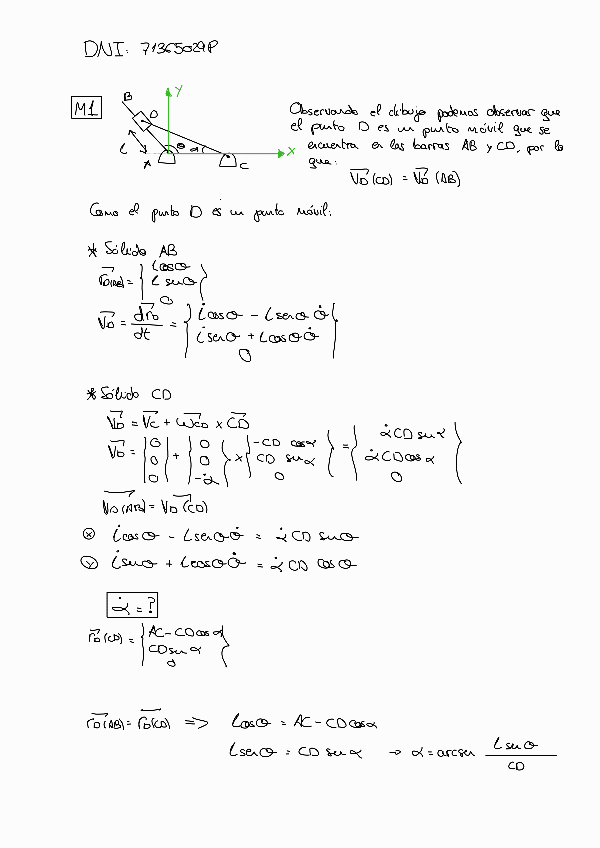 DNI: 71365029P
M1
B
D
Y
L
θ
α
A
C
X
Observando el dibujo podemos observar que
el punto D es un punto móvil que se
encuentra en las barras AB y CD, por lo
que:
V⃗D (CD) = V⃗D (AB)
Como el punto D es un punto móvil:
* Sólido AB
r⃗D(AB) = { Lcosθ
L senθ
0 }
V⃗D = dr⃗D/dt = { L̇cosθ - Lsenθ θ̇
L̇senθ + Lcosθθ̇
0 }
* Sólido CD
V⃗D = V⃗C + ω⃗CD x C⃗D
V⃗D = {0 0 0} + {0 0 -α̇} x {-CD cosα CD senα 0} = {α̇CD senα α̇CDcosα 0}
V⃗D(AB) = V⃗D(CD)
ⓧ L̇cosθ - Lsenθθ̇ = α̇ CD senθ
ⓨ L̇senθ + Lcosθθ̇ = α̇ CD cosθ
α̇ = ?
r⃗D(CD) = { AC - CDcosα
CDsenα
0 }
r⃗D(AB) = r⃗D(CD) => Lcosθ = AC - CDcosα
Lsenθ = CD senα → α = arcsen Lsenθ / CD